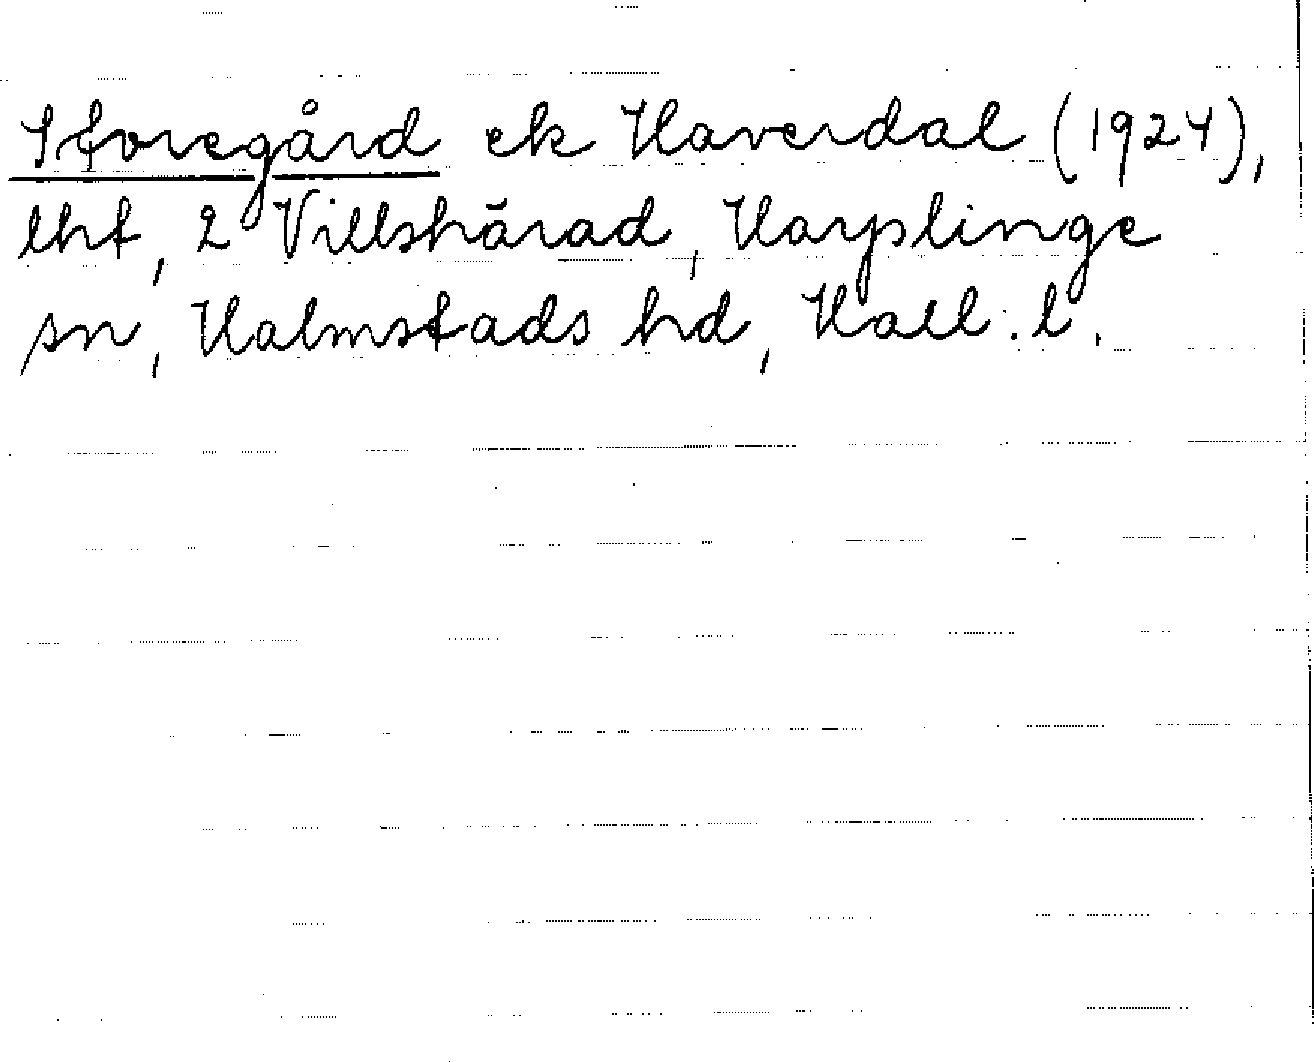 Storegård ek Haverdal (1924),
lht, 2 Villshärad, Harplinge
sn, Halmstads hd, Hall. l.